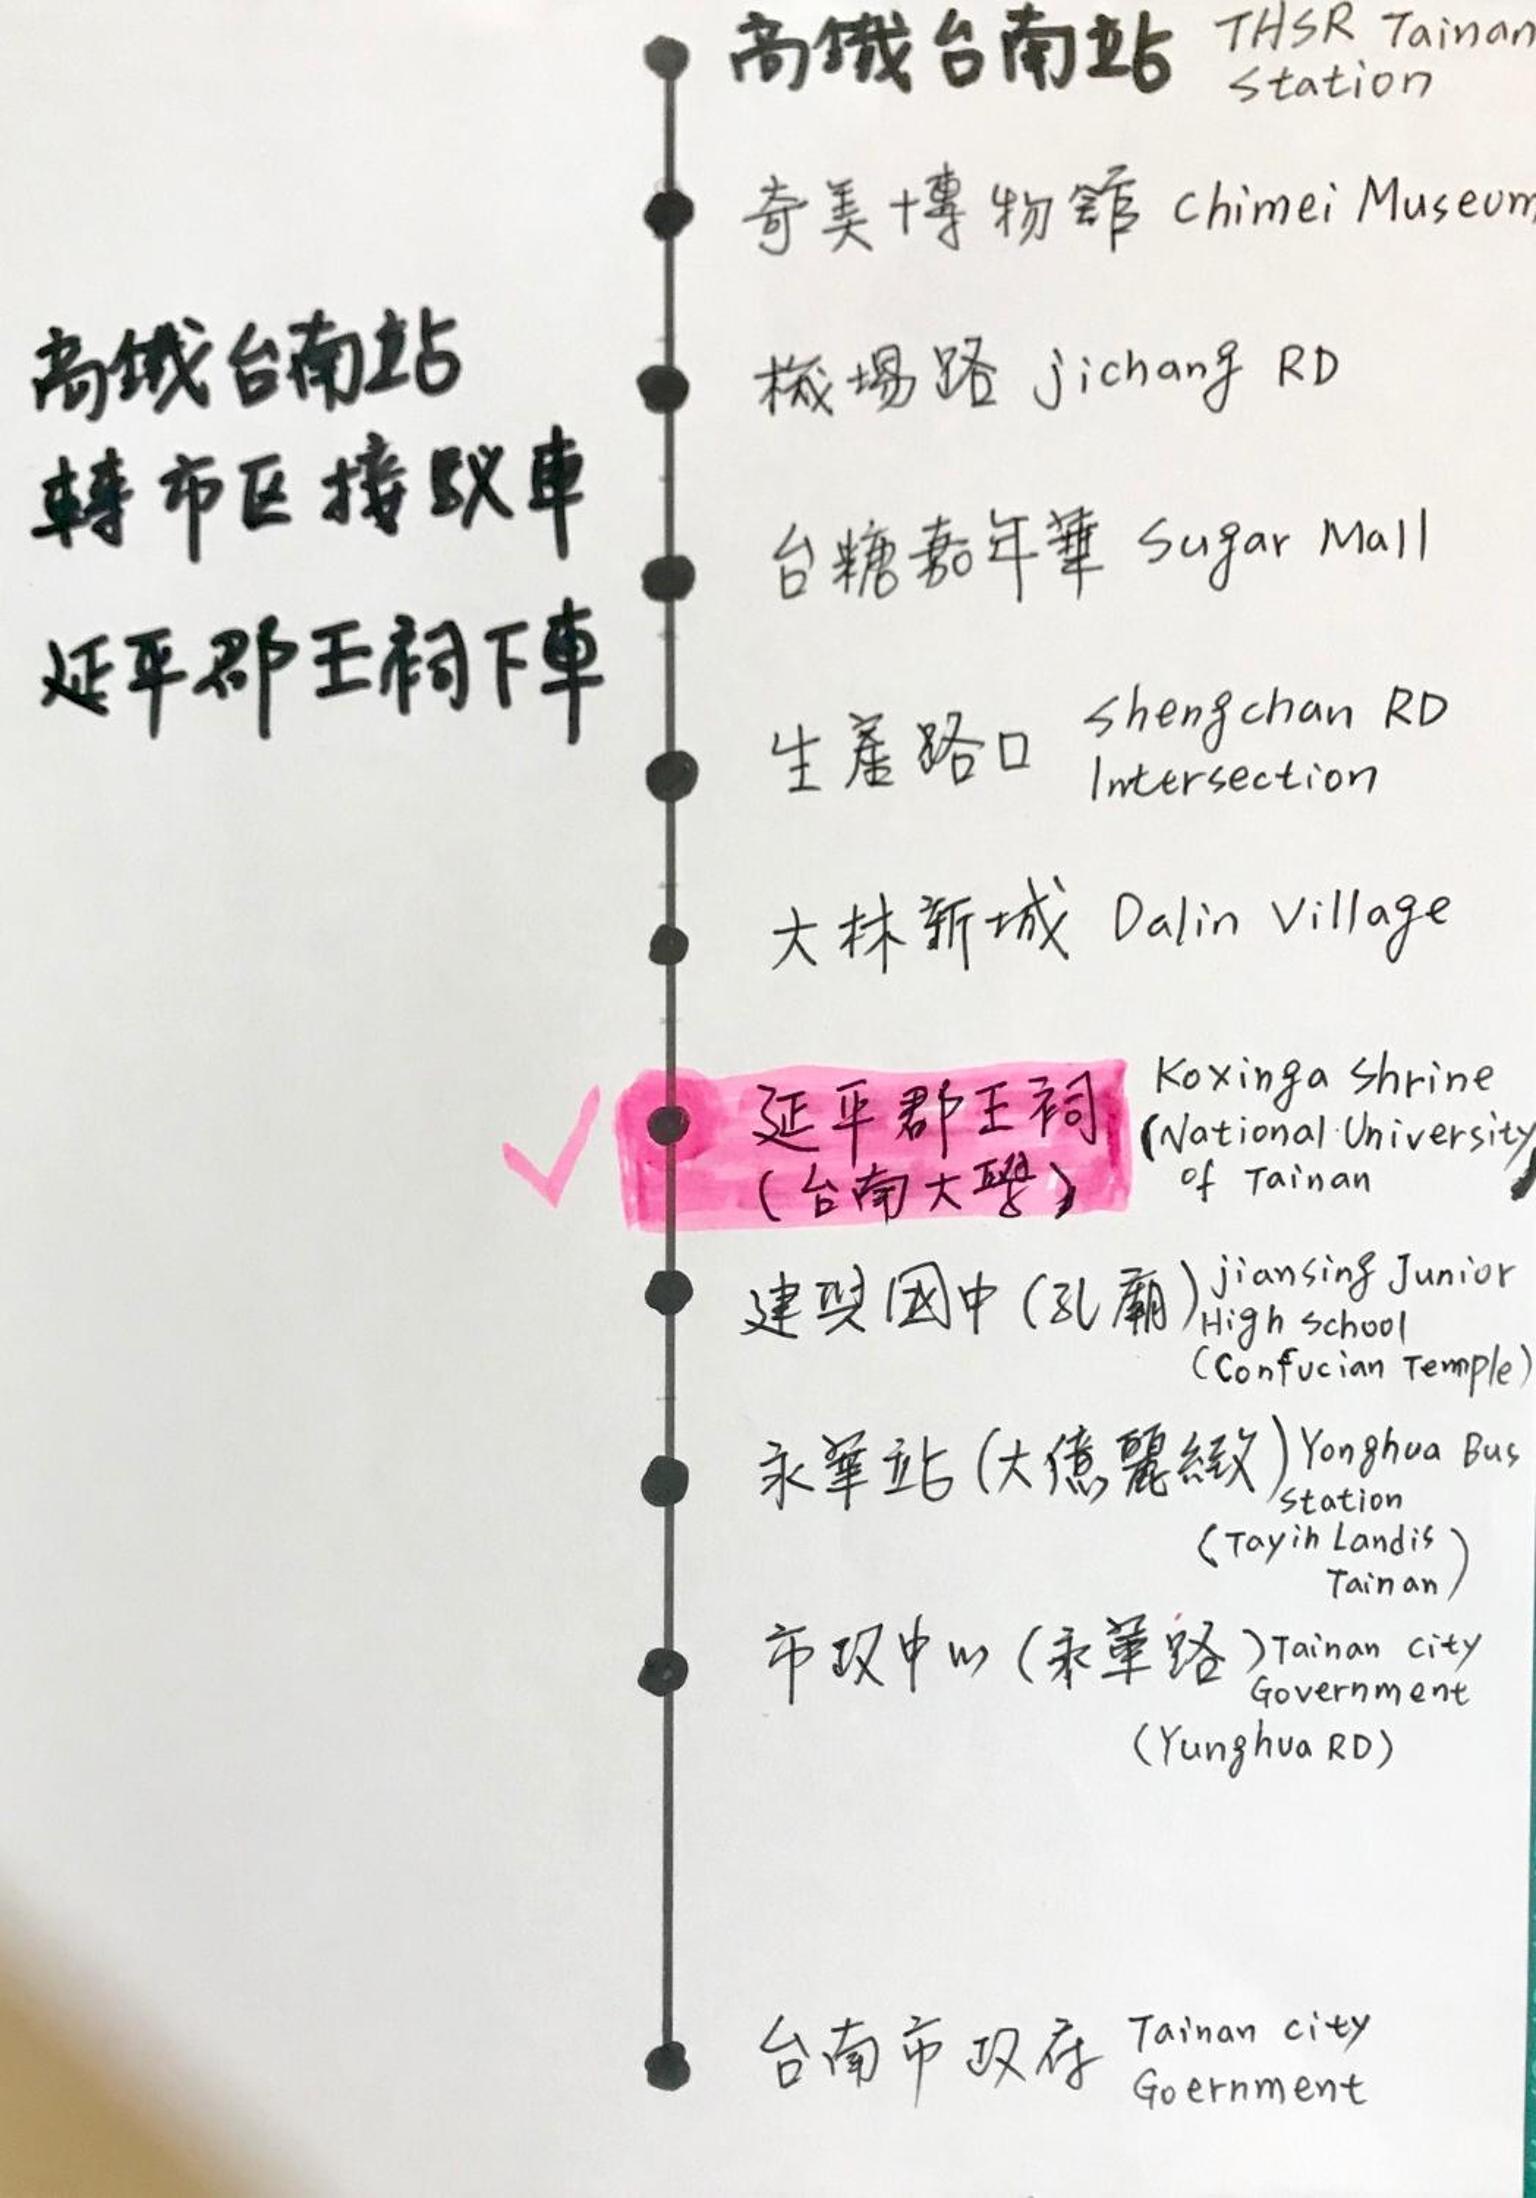 高鐵台南站 THSR Tainan
Station
奇美博物館 Chimei Museum
機場路 jichang RD
台糖嘉年華 Sugar Mall
生產路口 Shengchan RD
Intersection
大林新城 Dalin Village
延平郡王祠
(台南大學)
Koxinga Shrine
(National University
of Tainan
建興國中(孔廟) jiansing Junior
High School
(Confucian Temple)
永華站(大億麗緻) Yonghua Bus
Station
(Tayih Landis
Tainan)
市政中心(永華路) Tainan city
Government
(Yunghua RD)
台南市政府 Tainan city
Goernment
高鐵台南站
轉市区接駁車
延平郡王祠下車